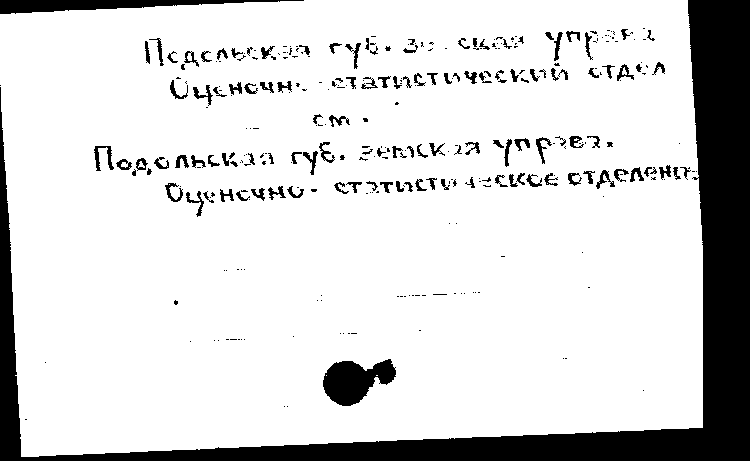 Подольская губ. земская управа
Оценочно-статистический отдел
см.
Подольская губ. земская управа.
Оценочно-статистическое отделение